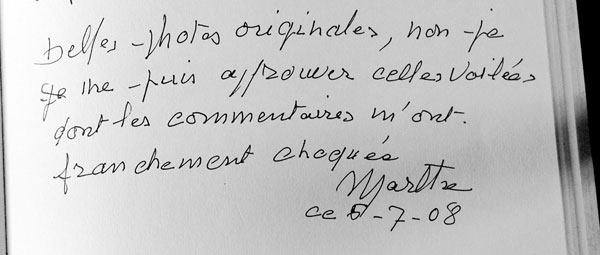 Belles photos originales, non je
je ne puis approuver celles voilées
dont les commentaires m'ont
franchement choquée
Marthe
ce 5-7-08